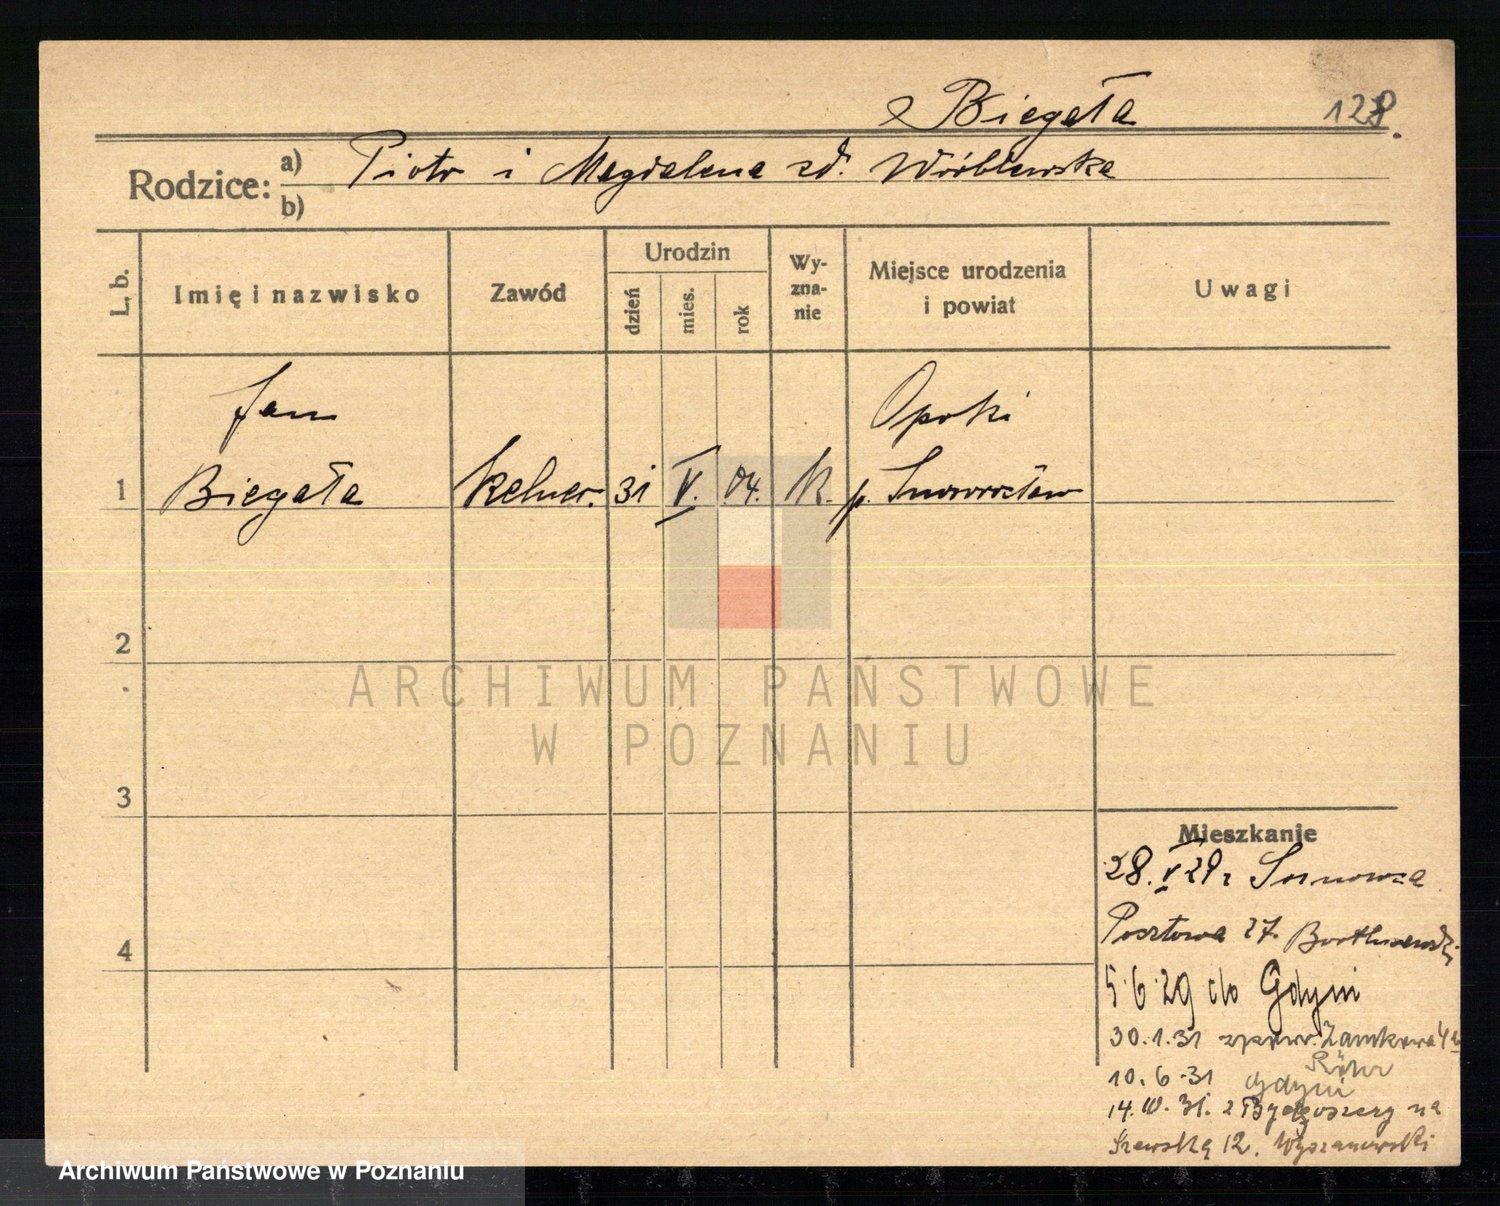 Biegała 128.
Rodzice: a) Piotr i Magdalena zd. Wróblewska
b)
L. b. Imię i nazwisko Zawód Urodzin dzień mies. rok Wyznanie Miejsce urodzenia i powiat Uwagi
Jan Opoki
1 Biegała kelner. 31 V. 04. K. p. Inowrocław
2
3
4
Mieszkanie
28. V 29 r Inowrocł
Pocztowa 27.
5.6.29 do Gdyni
30.1.31 Zamkowa 4
10.6.31 Gdyni
14. 31. z Bydgoszczy na
Szewską 12. Wyszanowski
ARCHIWUM PAŃSTWOWE
W POZNANIU
Archiwum Państwowe w Poznaniu